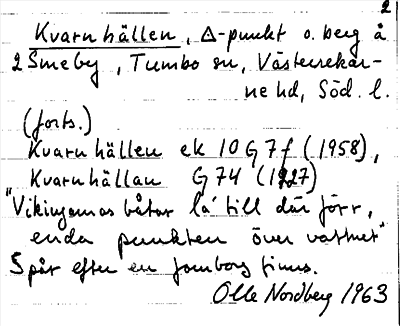 2
Kvarnhällen, Δ-punkt o. berg å
2 Smeby, Tumbo sn, Västerrekar-
ne hd, Söd. l.
(forts.)
Kvarnhällen ek 10 G 7 f (1958),
Kvarnhällan G 74 (1927)
"Vikingarnas båtar lå till där förr,
enda punkten över vattnet"
Spår efter en fornborg finns.
Olle Nordberg 1963